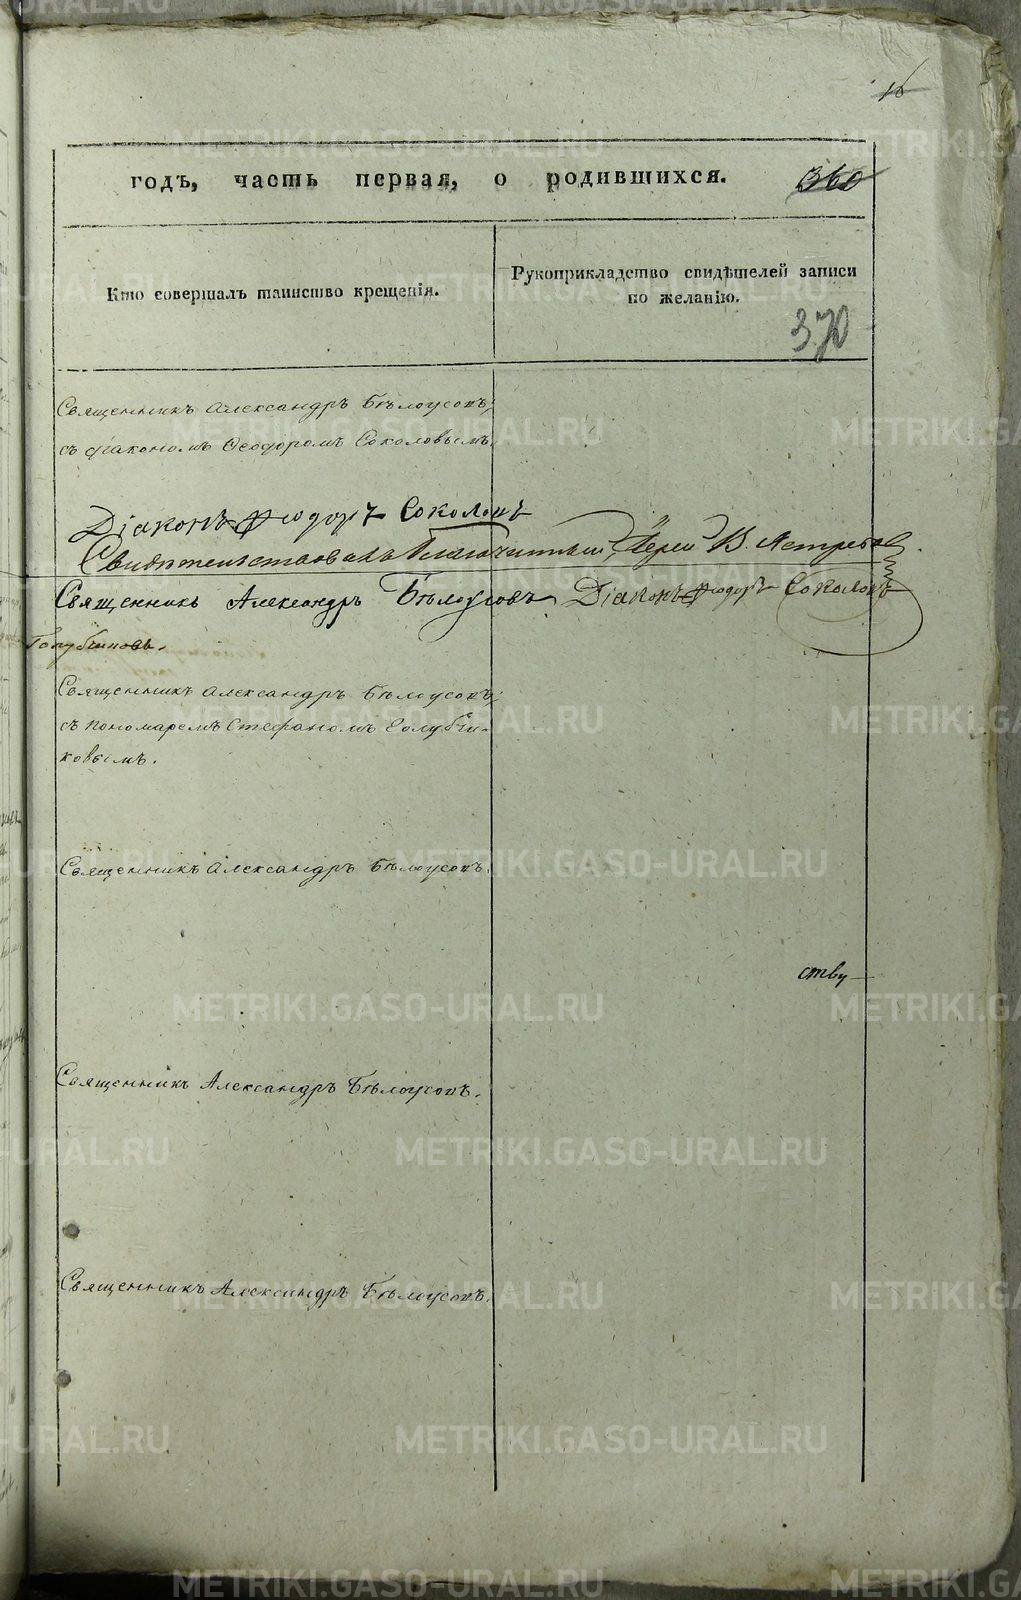 16
годъ, часть первая, о родившихся. 360
Кто совершалъ таинство крещенія.
Рукоприкладство свидѣтелей записи
по желанію.
370
Священникъ Александръ Бѣлоусовъ,
съ діакономъ Ѳеодоромъ Соколовымъ.
Діаконъ Ѳеодоръ Соколовъ
Свидѣтельствовалъ Благочинный Іерей В. Ястребовъ.
Священникъ Александръ Бѣлоусовъ Діаконъ Ѳеодоръ Соколовъ
Голубчиковъ.
Священникъ Александръ Бѣлоусовъ,
съ пономаремъ Стефаномъ Голубчи-
ковымъ.
Священникъ Александръ Бѣлоусовъ.
ству
Священникъ Александръ Бѣлоусовъ.
Священникъ Александръ Бѣлоусовъ.
METRIKI.GASO-URAL.RU